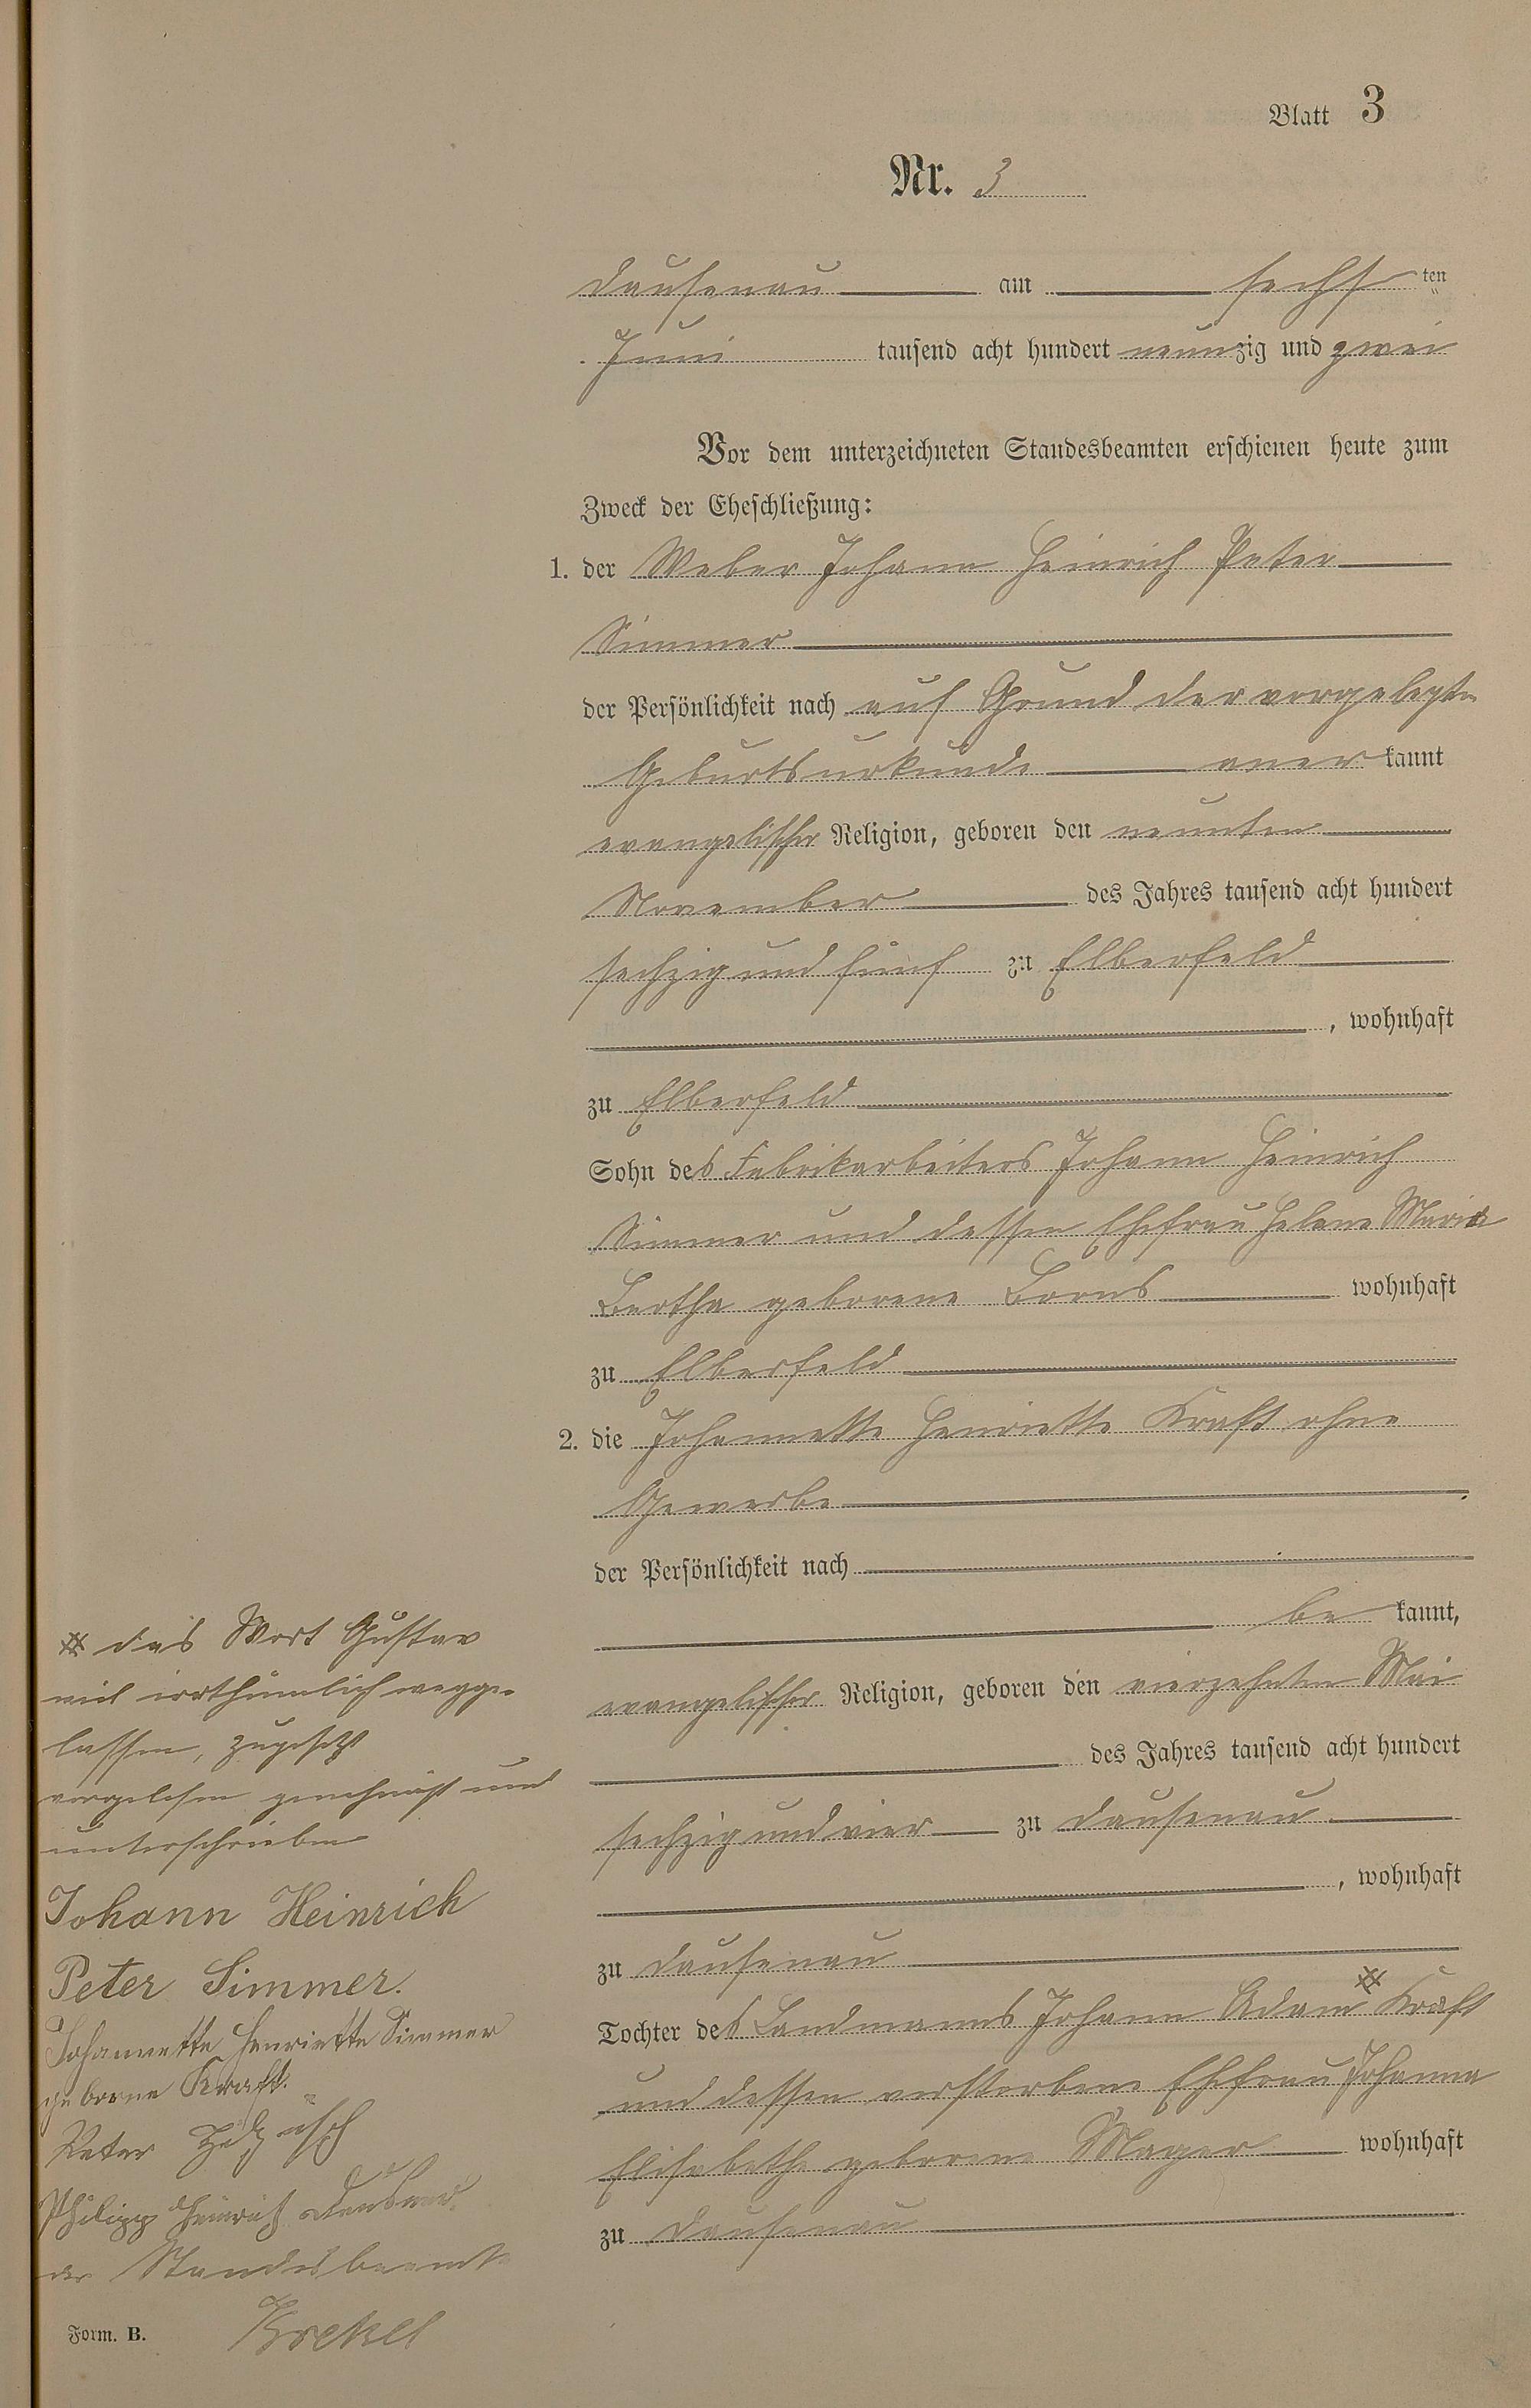 Blatt 3
Nr. 3
Dausenau am sechsten
Juni tausend acht hundert neunzig und zwei
Vor dem unterzeichneten Standesbeamten erschienen heute zum
Zweck der Eheschließung:
1. der Weber Johann Heinrich Peter
Simmer
der Persönlichkeit nach auf Grund der vorgelegten
Geburtsurkunde anerkannt
evangelischer Religion, geboren den neunten
November des Jahres tausend acht hundert
sechzig und fünf zu Elberfeld
, wohnhaft
zu Elberfeld
Sohn des Fabrikarbeiters Johann Heinrich
Simmer und dessen Ehefrau Helene Maria
Bertha geborene Borns wohnhaft
zu Elberfeld
2. die Johannette Henriette Kraft ohne
Gewerbe
der Persönlichkeit nach
bekannt,
evangelischer Religion, geboren den vierzehnten Mai
des Jahres tausend acht hundert
sechzig und vier zu Dausenau
, wohnhaft
zu Dausenau
Tochter des Landmanns Johann Adam # Kraft
und dessen verstorbene Ehefrau Johanna
Elisabethe geborene Mager wohnhaft
zu Dausenau
# das Wort Gustav
weil irrthümlich wegge-
lassen, zugesetzt
vorgelesen genehmigt und
unterschrieben
Johann Heinrich
Peter Simmer.
Johannette Henriette Simmer
geborne Kraft.
Peter
Philipp Heinrich
der Standesbeamte
Krekel
Form. B.